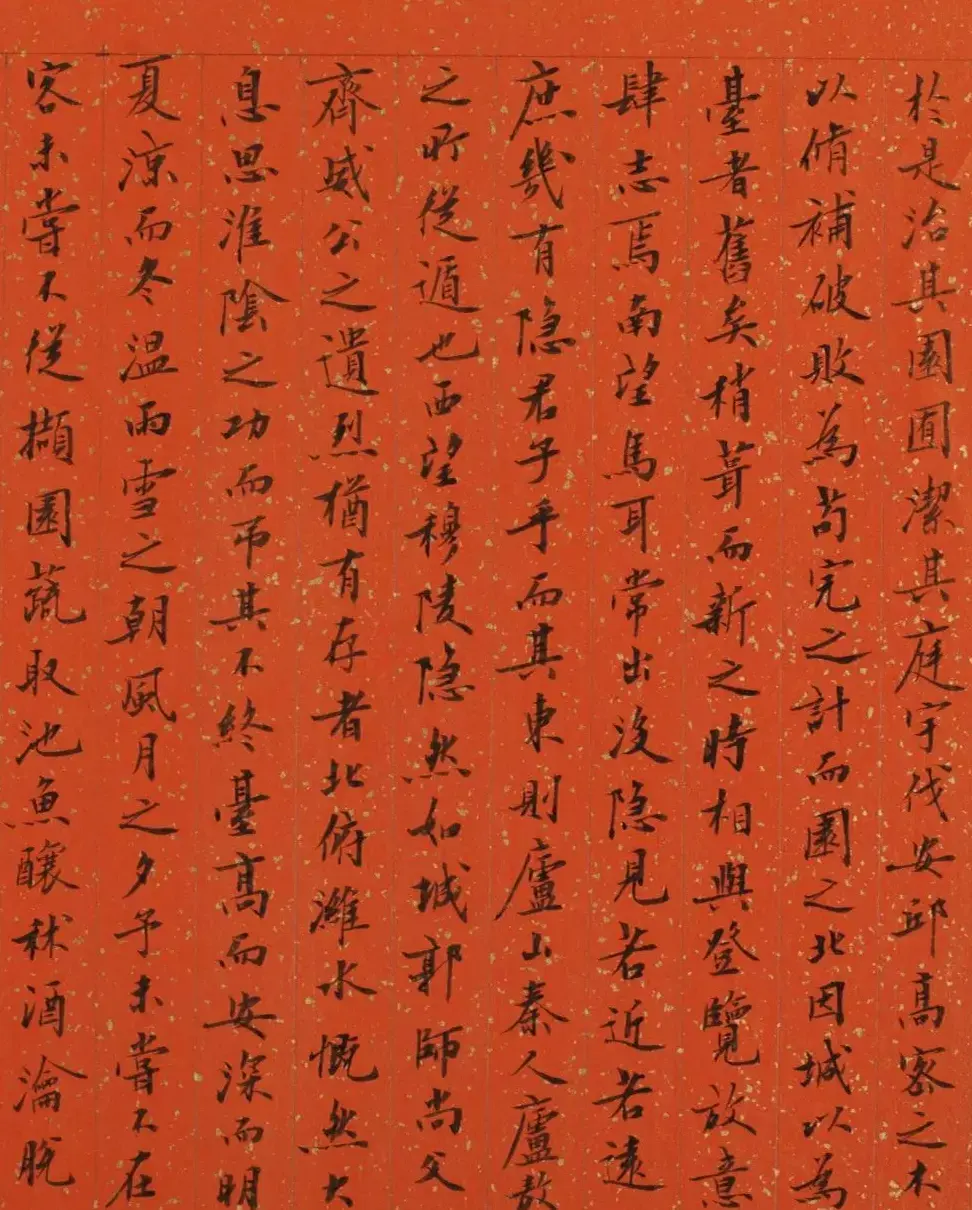 於是治其園圃潔其庭宇伐安邱高密之木
以脩補破敗為苟完之計而園之北因城以為
臺者舊矣稍葺而新之時相與登覽放意
肆志焉南望馬耳常出沒隐見若近若遠
庶幾有隐君子乎而其東則廬山秦人廬敖
之所從遁也西望穆陵隐然如城郭師尚父
齊威公之遺烈猶有存者北俯濰水慨然大
息思淮陰之功而吊其不終臺高而安深而明
夏涼而冬温雨雪之朝風月之夕予未嘗不在
客未嘗不從擷園蔬取池魚釀秫酒瀹脫